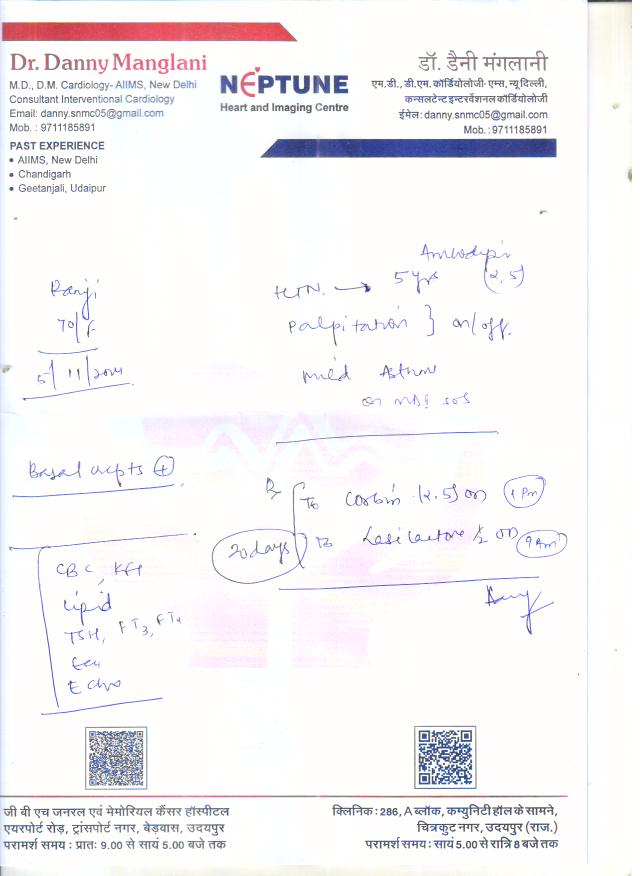 Dr. Danny Manglani
M.D., D.M. Cardiology- AIIMS, New Delhi
Consultant Interventional Cardiology
Email: danny.snmc05@gmail.com
Mob. : 9711185891
PAST EXPERIENCE
• AIIMS, New Delhi
• Chandigarh
• Geetanjali, Udaipur
NEPTUNE
Heart and Imaging Centre
डॉ. डैनी मंगलानी
एम.डी., डी.एम. कॉर्डियोलोजी- एम्स, न्यू दिल्ली,
कन्सलटेन्ट इन्टरवेंशनल कॉर्डियोलोजी
ईमेल: danny.snmc05@gmail.com
Mob.: 9711185891
Ranji
70/F
5/11/2024
HTN. → 5 yrs (2.5)
Palpitation } on/off.
mild
on sos
Basal crepts +
CBC, KFT
Lipid
TSH, FT3, FT4
Ecg
Echo
Rx
(2.5) OD 1 Pm
Lasilactone 1/2 OD 9 Am
20 days
जी बी एच जनरल एवं मेमोरियल कैंसर हॉस्पीटल
एयरपोर्ट रोड़, ट्रांसपोर्ट नगर, बेड़वास, उदयपुर
परामर्श समय : प्रातः 9.00 से सायं 5.00 बजे तक
क्लिनिक : 286, A ब्लॉक, कम्युनिटी हॉल के सामने,
चित्रकुट नगर, उदयपुर (राज.)
परामर्श समय: सायं 5.00 से रात्रि 8 बजे तक